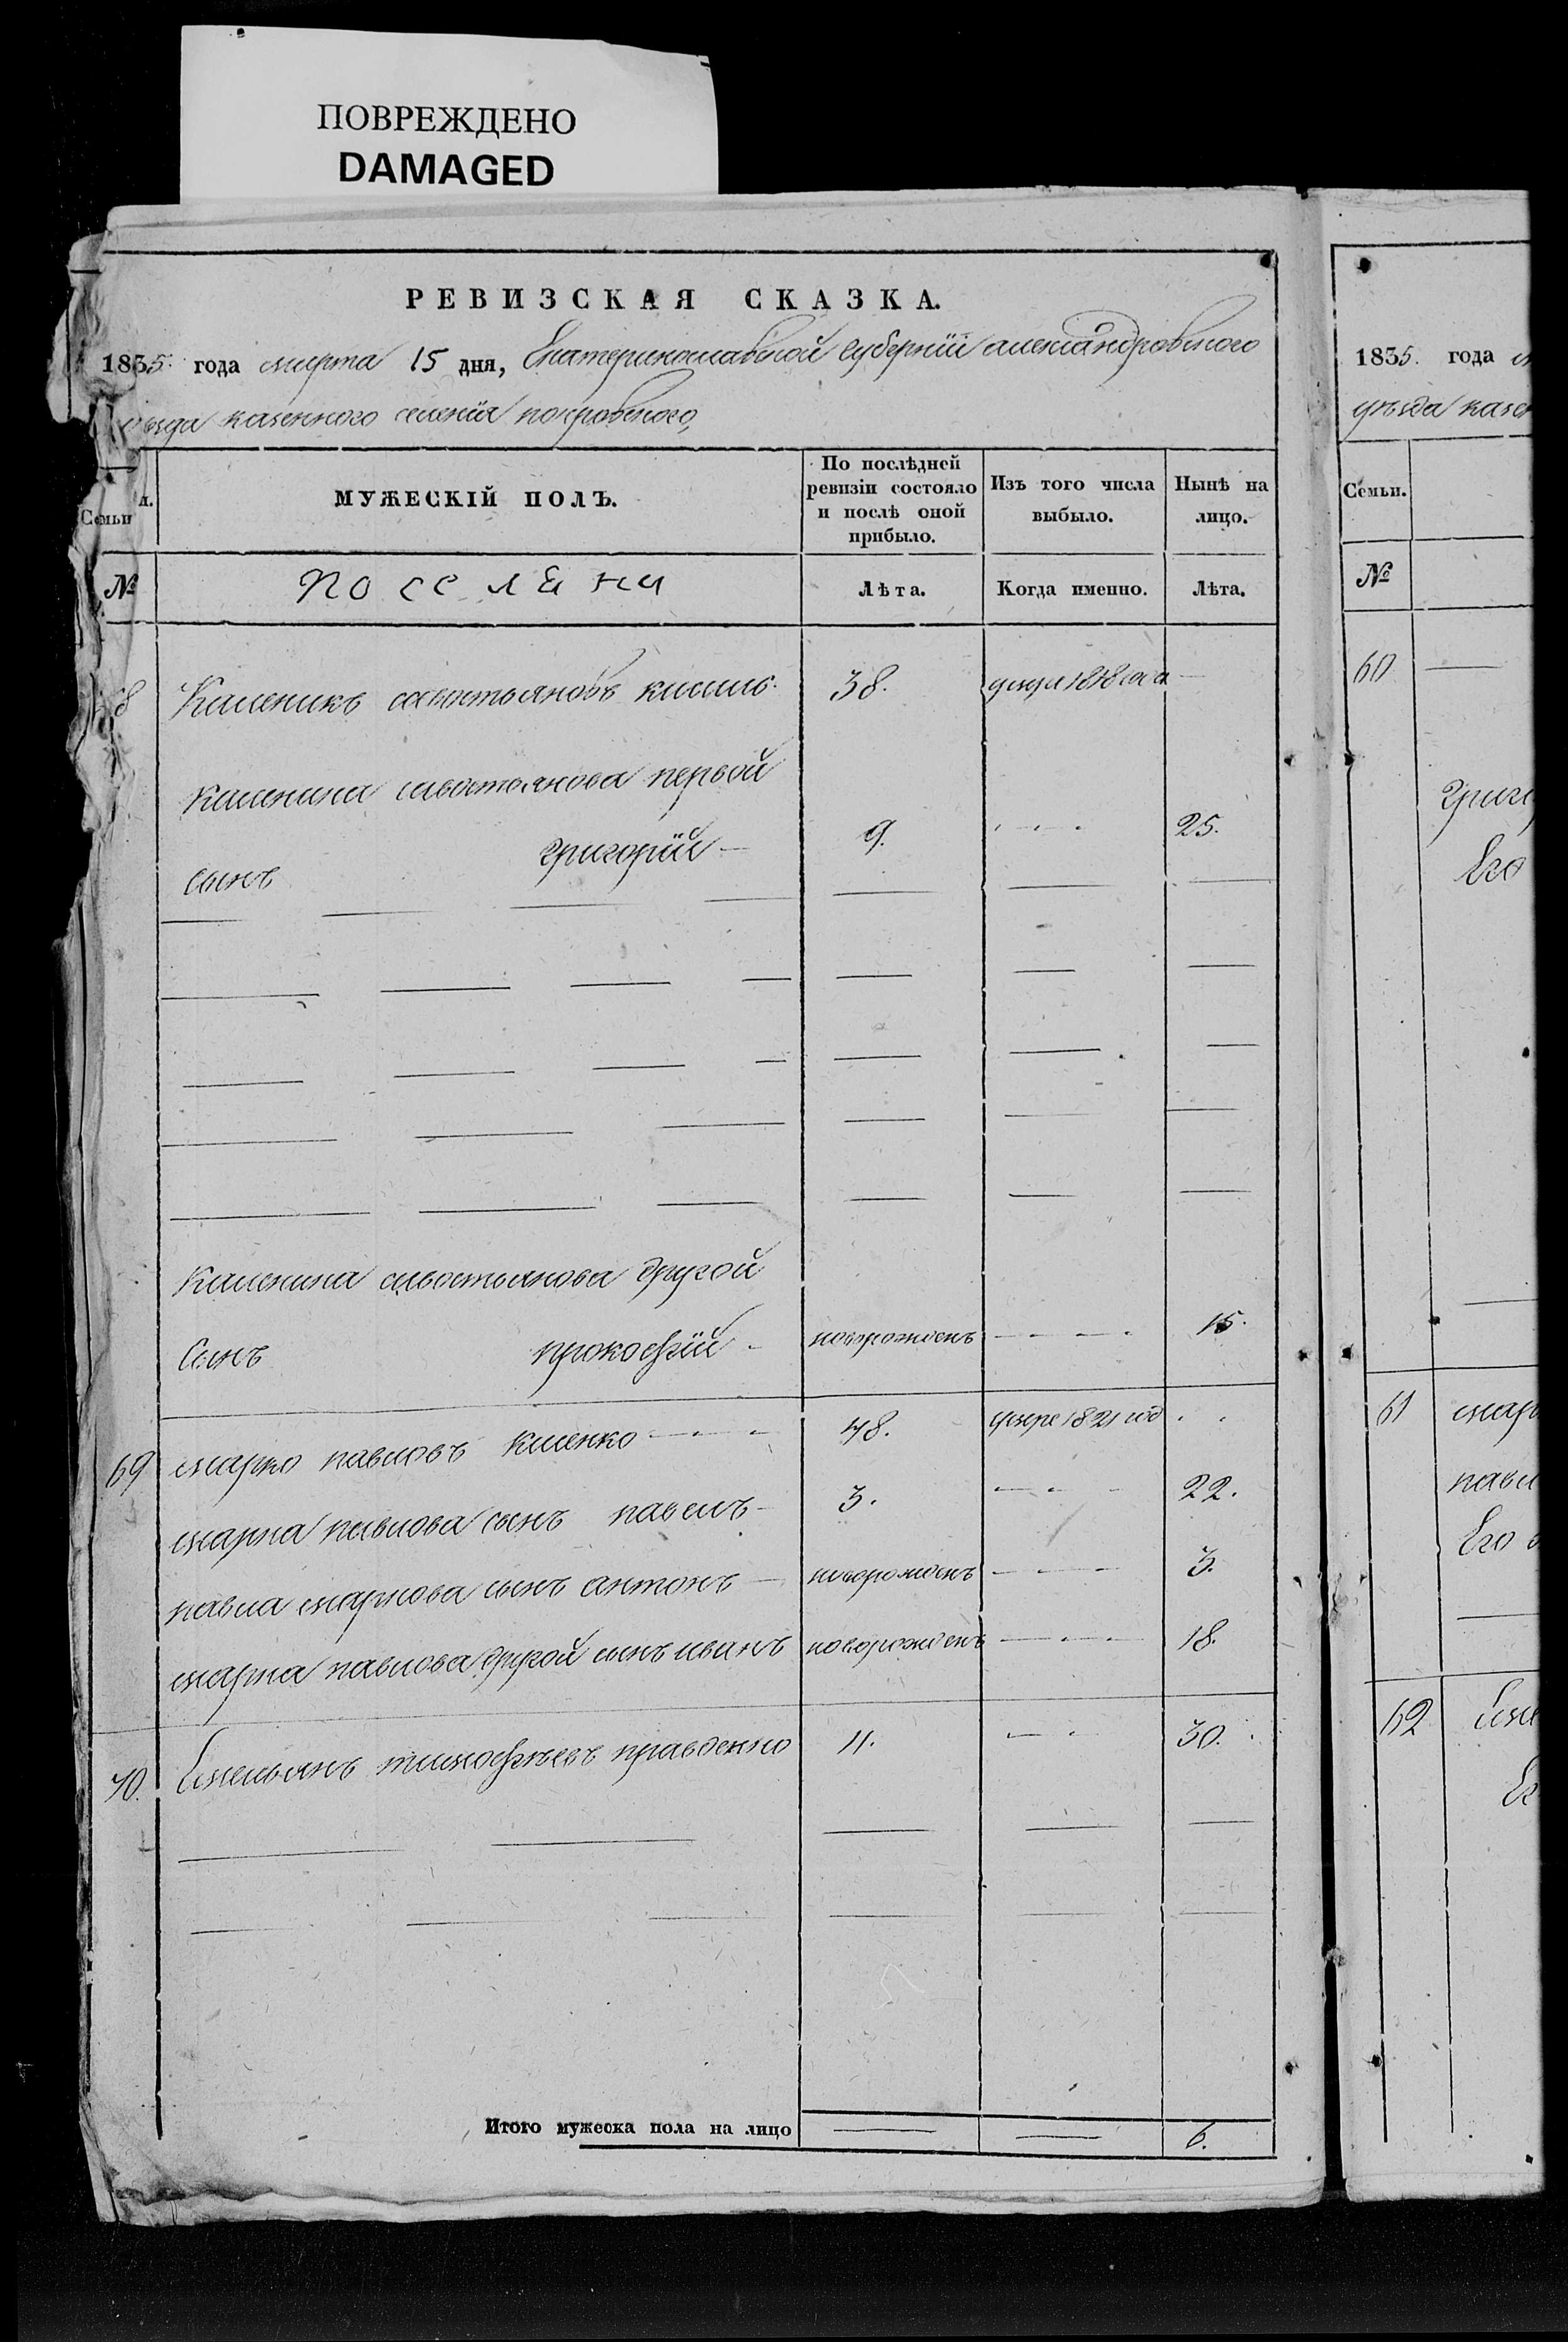 ПОВРЕЖДЕНО
DAMAGED
РЕВИЗСКАЯ СКАЗКА.
1835 года марта 15 дня, Екатеринославской губерніи александровского
уѣзда казенного селенія покровского,
Семьи
МУЖЕСКІЙ ПОЛЪ.
По послѣдней ревизіи состояло и послѣ оной прибыло.
Изъ того числа выбыло.
Нынѣ на лицо.
№
поселяни
Лѣта.
Когда именно.
Лѣта.
8 Каленикъ савостьяновъ кисиль 38. 1818
Каленика савостьянова первой
сынъ григорій 9. 25.
Каленика савостьянова другой
Сынъ прокофій новорожденъ 15.
69 марко павловъ клменко 48. умре 1821 год
марка павлова сынъ павелъ 3. 22.
павла маркова сынъ антонъ новорожденъ 3.
марка павлова другой сынъ иванъ новорожденъ 18.
70. Емельянъ тимофѣевъ правденко 11. 30.
Итого мужеска пола на лицо 6.
1835. года
уѣзда казен
Семьи.
№
60
григ
Его
61 мар
павл
Его
62 Еме
Ег